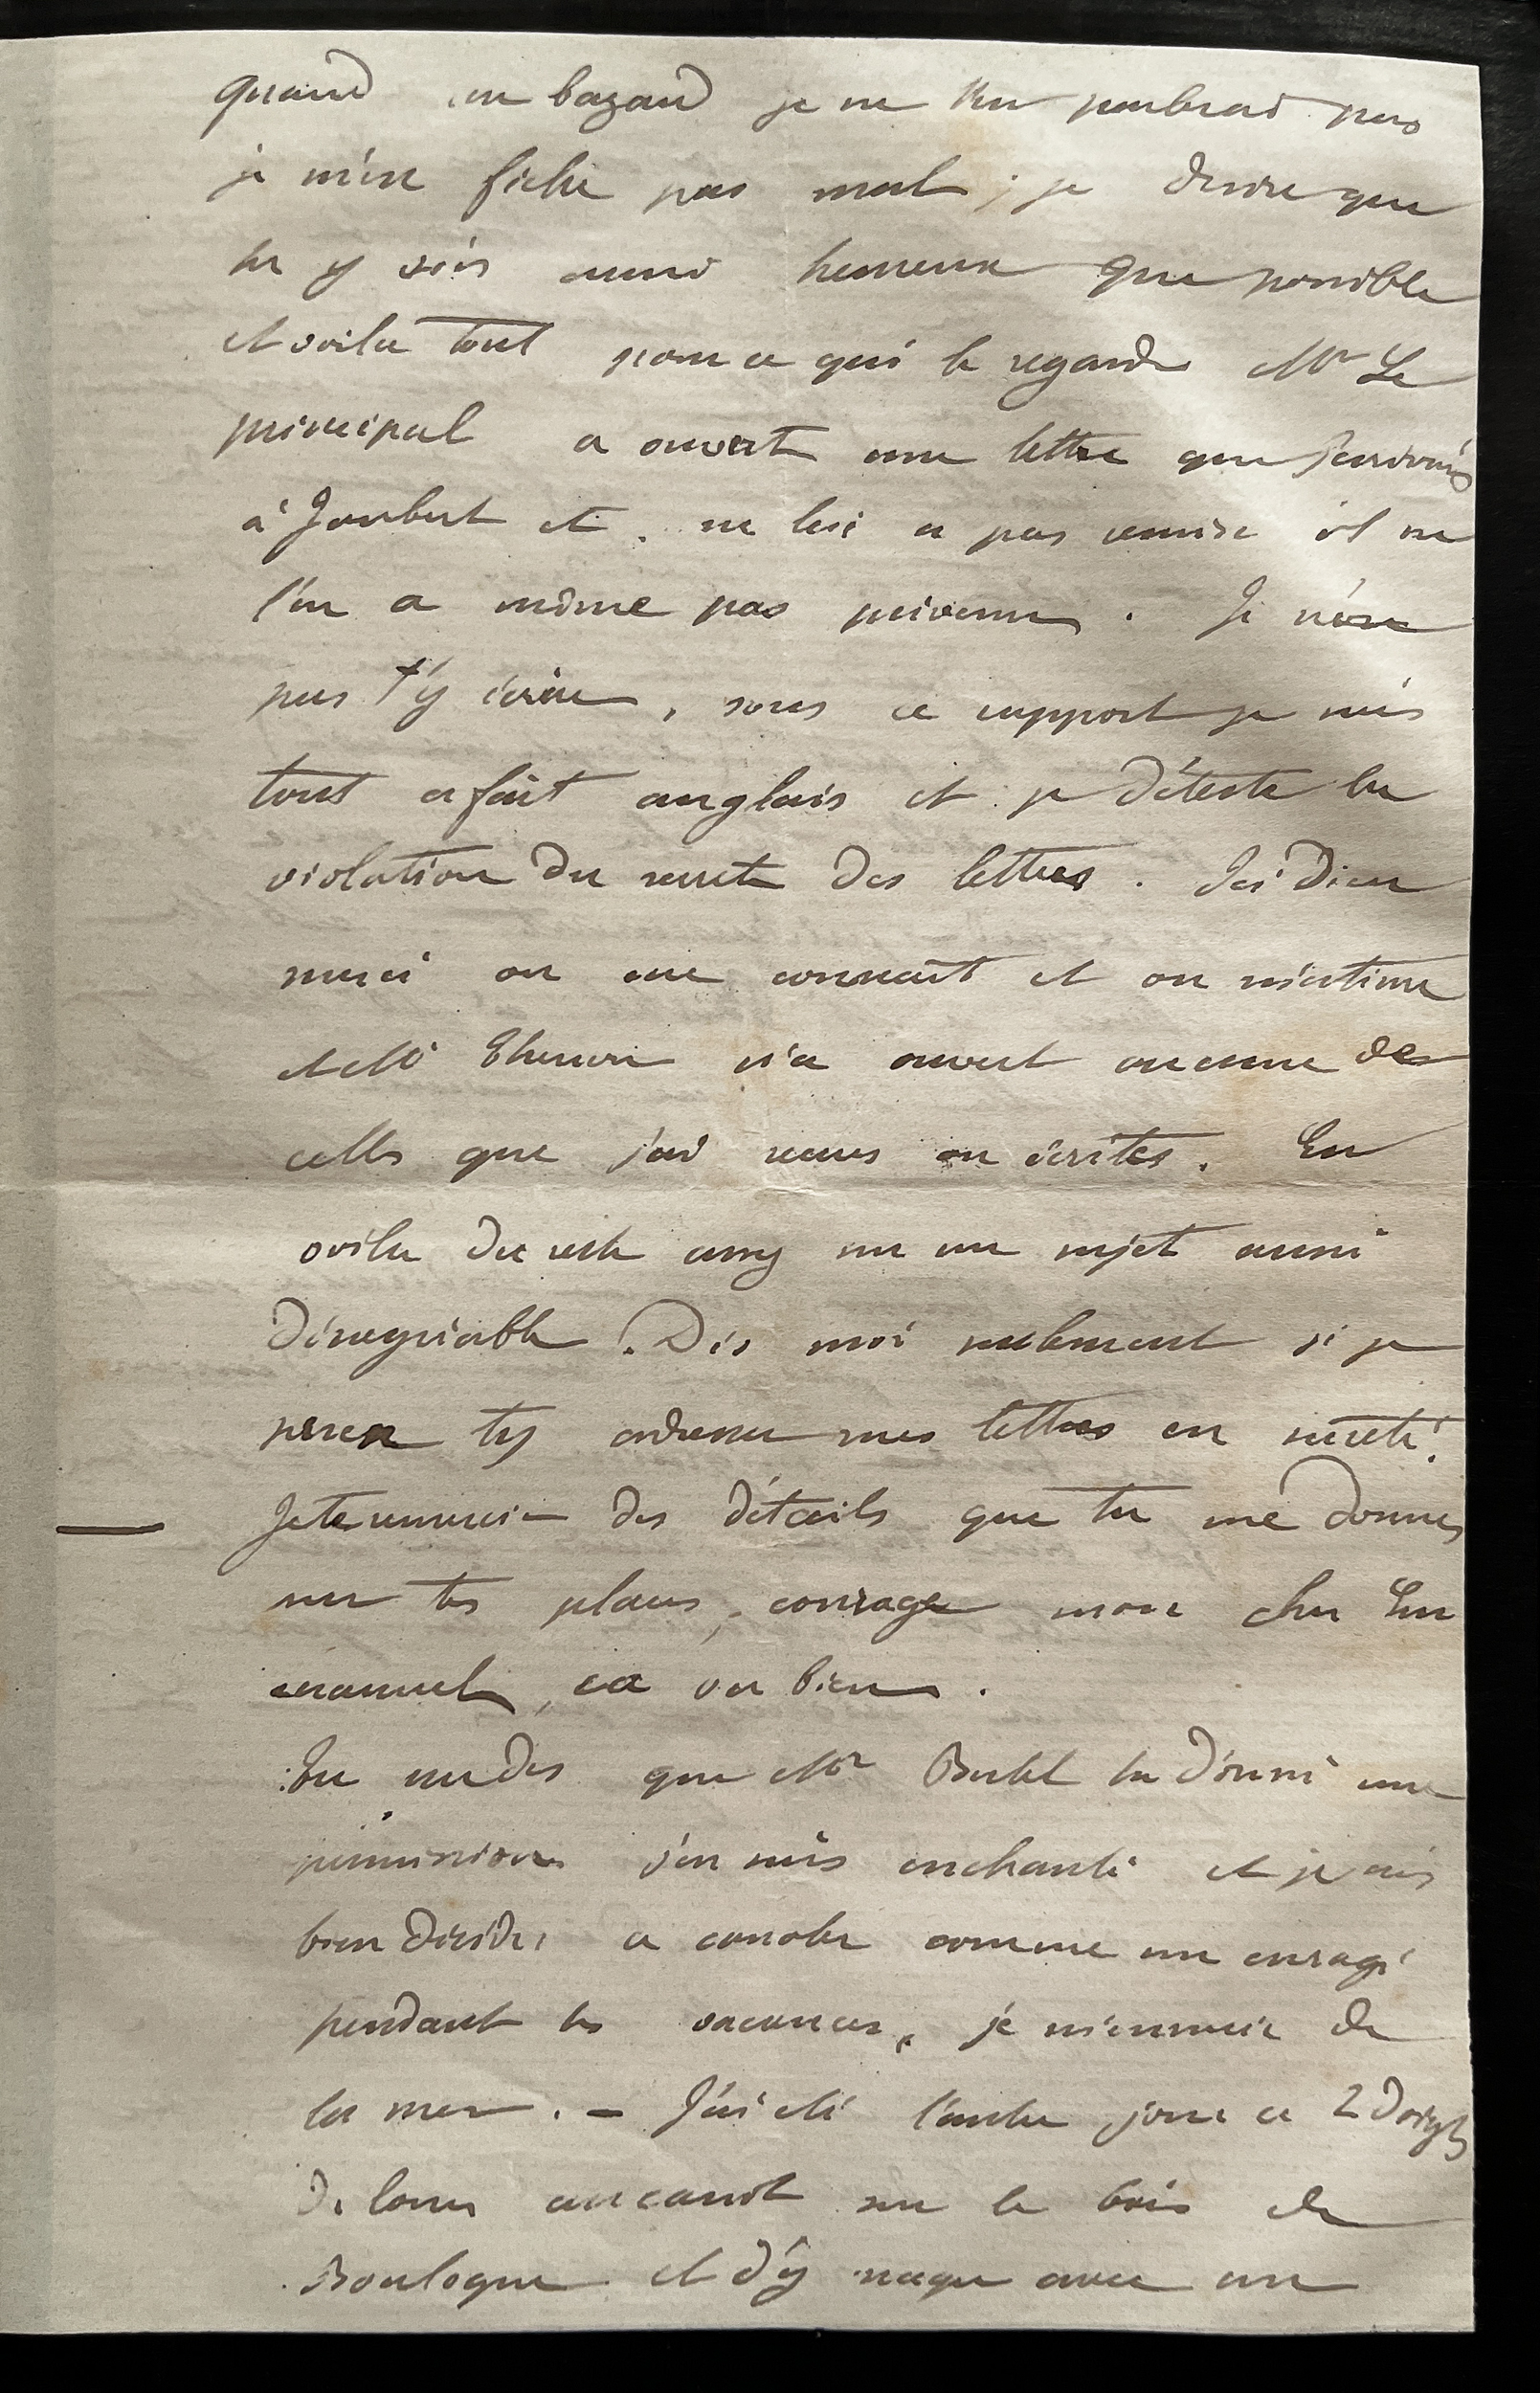 quand au bazard je ne t'en parlerai pas
je m'en fiche pas mal ; je desire que
tu y sois aussi heureux que possible
et voila tout pour ce qui le regarde Mr Le
principal a ouvert une lettre que j'ecrivais
à Joubert et ne lui a pas remise il ne
l'en a même pas prévenu . Je n'ose
pas t'y écrire , sous ce rapport je suis
tout a fait anglais et je déteste la
violation du secret des lettres . Ici Dieu
merci on me connait et on m'estime
et Mr n'a ouvert aucune de
celles que j'ai recues ou écrites . En
voila du reste assez sur un sujet aussi
désagréable . Dis moi seulement si je
peux t'y adresser mes lettres en sureté .
Je te remercie des détails que tu me donnes
sur tes plans , courage mon cher Em
manuel , ca va bien .
Tu me dis que Mr t'a donné une
permission j'en suis enchanté et je suis
bien décidé a canoter comme un enragé
pendant les vacances , je m'ennuie de
la mer . – J'ai été l'autre jour a 2 doigts
de louer un canot sur le bois de
Boulogne et d'y nager avec un